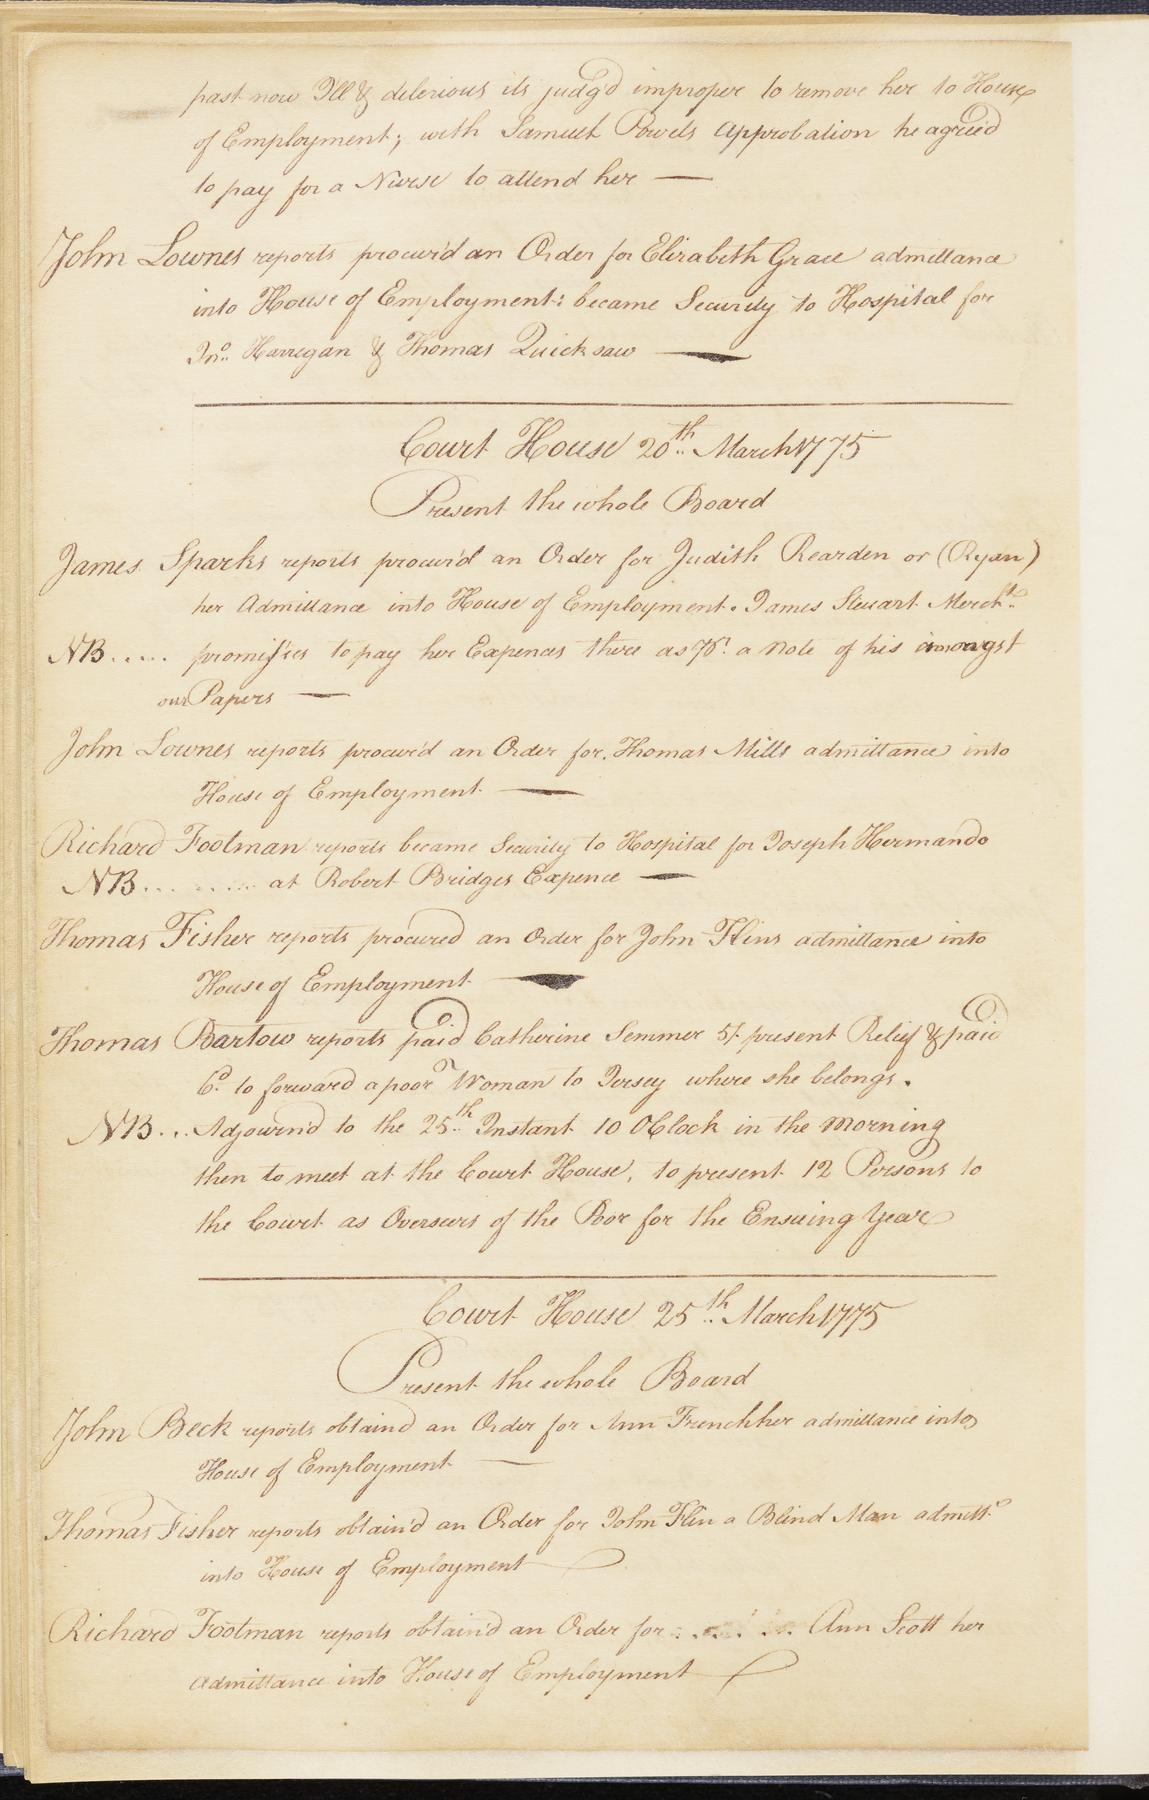 past now Ill & delerious its judg'd improper to remove her to House
of Employment; with Samuel Powels Approbation he agree'd
to pay for a Nurse to attend her —
John Lownes reports procur'd an Order for Elizabeth Grace admittance
into House of Employment: became Security to Hospital for
Jno. Harregan & Thomas Quicksaw —
Court House 20th March 1775
Present the whole Board
James Sparks reports procur'd an Order for Judith Rearden or (Ryan)
her Admittance into House of Employment. James Steuart Mercht.
NB..... promisses to pay her Expences there as pr. a Note of his amongst
our Papers —
John Lownes reports procur'd an Order for Thomas Mills admittance into
House of Employment —
Richard Footman reports became Security to Hospital for Joseph Hermando
NB........ at Robert Bridges Expence —
Thomas Fisher reports procured an Order for John Flins admittance into
House of Employment —
Thomas Bartow reports paid Catherine Semmer 5/ present Relief & paid
6d. to forward a poor Woman to Jersey where she belongs.
NB... Adjourn'd to the 25th Instant 10 OClock in the Morning
then to meet at the Court House, to present 12 Persons to
the Court as Overseers of the Poor for the Ensuing Year
Court House 25th March 1775
Present the whole Board
John Beck reports obtain'd an Order for Ann French her admittance into
House of Employment —
Thomas Fisher reports obtain'd an Order for John Flin a Blind Man admitte
into House of Employment
Richard Footman reports obtain'd an Order for Ann Scott her
Admittance into House of Employment